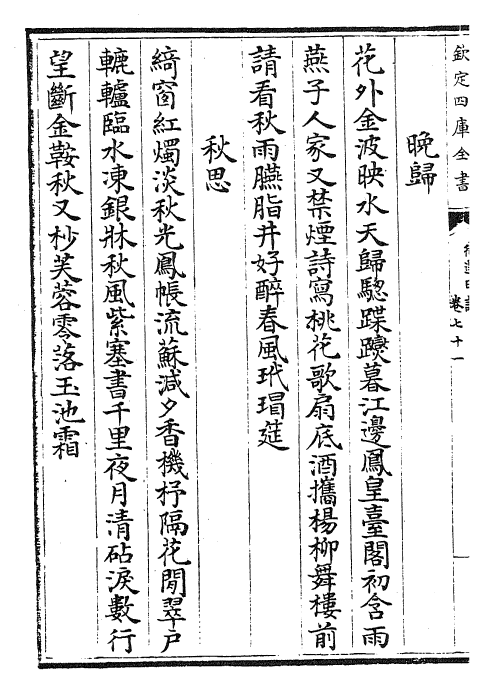 欽定四庫全書
卷七十一
晚歸
花外金波映水天歸騘蹀躞暮江邊鳳皇臺閣初含雨
燕子人家又禁煙詩寫桃花歌扇底酒攜楊柳舞樓前
請看秋雨臙脂井好醉春風玳瑁筵
秋思
綺窗紅燭淡秋光鳳帳流蘇減夕香機杼隔花閒翠戶
轆轤臨水凍銀牀秋風紫塞書千里夜月清砧淚數行
望斷金鞍秋又杪芙蓉零落玉池霜